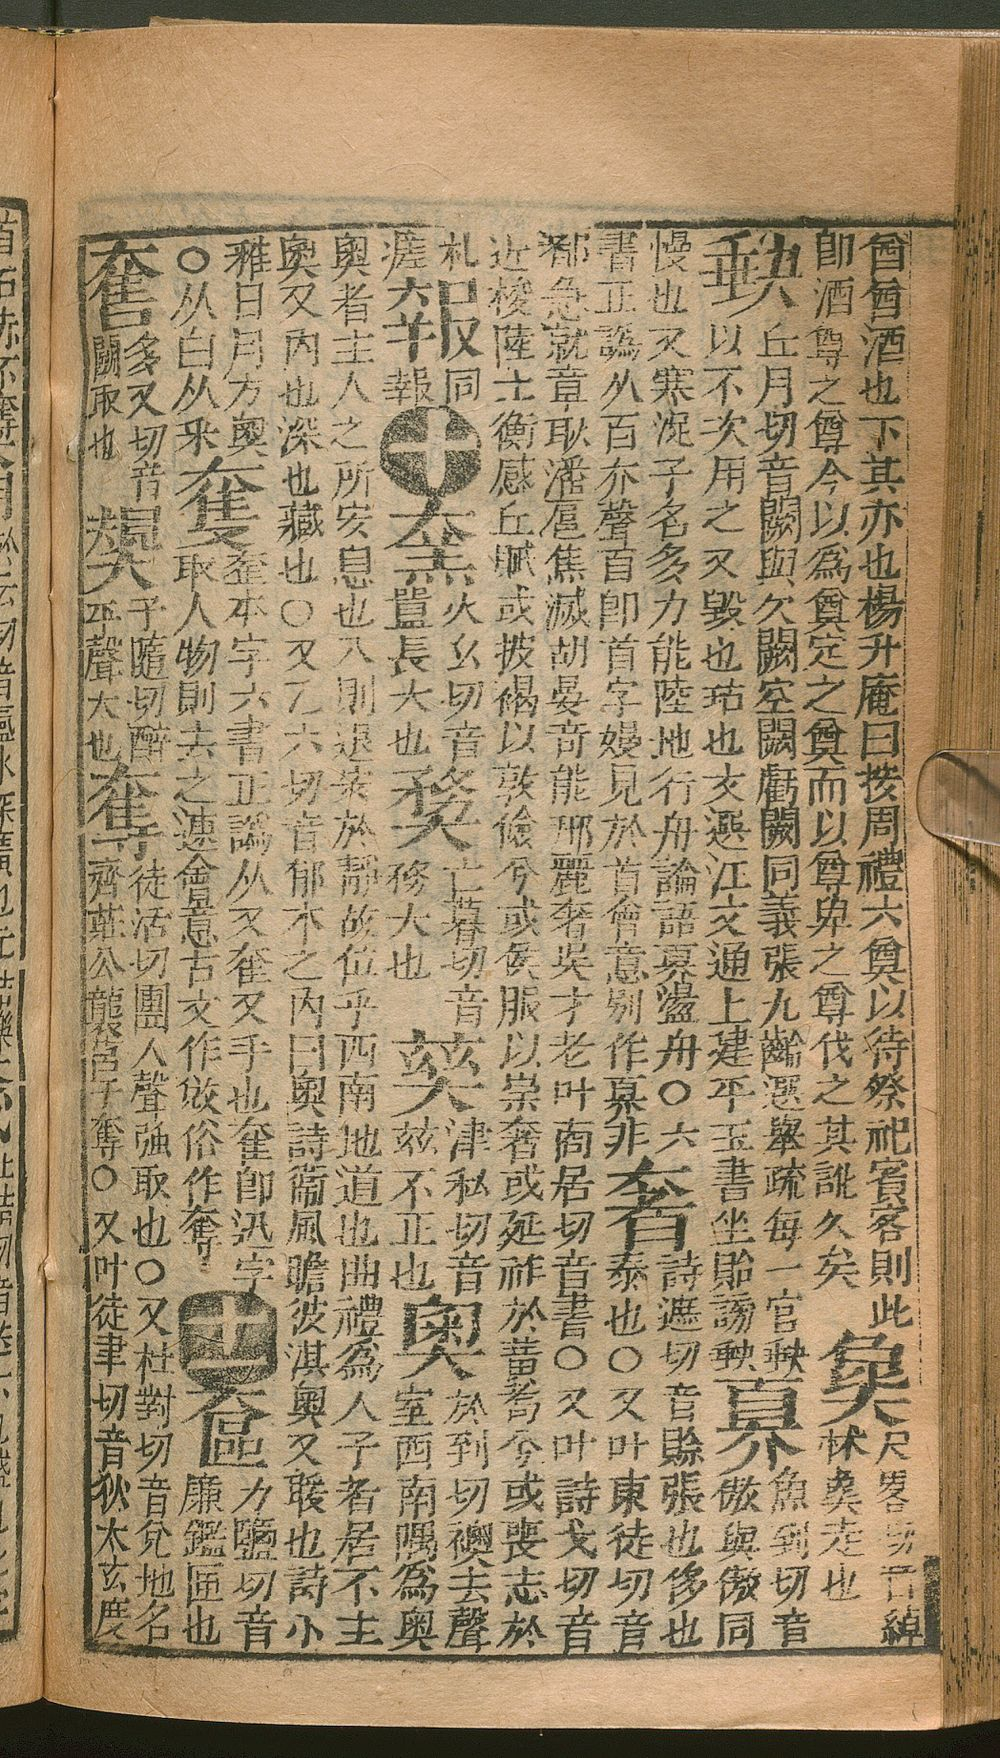 酋酋酒也下其亦也楊升庵曰按周禮六奠以待祭祀賓客則此
卽酒尊之尊今以爲奠定之奠而以尊卑之尊伐之其訛久矣 𡙷 尺畧切音綽
林𡙷走也
𡙇 丘月切音闕與欠闕空闕虧闕同義張九齡選舉疏每一官𡙇
以不次用之又毀也玷也文選江文通上建平王書坐貽謗𡙇 奡 魚到切音
傲與傲同
慢也又寒浞子名多力能陸地行舟論語奡盪舟○六
書正譌从百亦聲百卽首字嫚見於首會意別作奡非 奢 詩遮切音賒張也侈也
泰也○又叶東徒切音
都急就章耿潘扈焦滅胡晏奇能邢麗奢吳才老叶商居切音書○又叶詩戈切音
近梭陸士衡感丘賦或披褐以敦儉兮或侯服以崇奢或延祚於黃耇兮或喪志於
札 報 同
㷖 火幺切音
囂長大也 𡙭 亡暮切音
務大也 津私切音
茲不正也 奧 於到切襖去聲
室西南隅爲奧
奧者主人之所安息也入則退安於靜故位乎西南地道也曲禮爲人子者居不主
奧又內也深也藏也○又乙六切音郁水之內曰奧詩衞風瞻彼淇奧又暖也詩小
雅日月方奧
○从白从釆 奪 本字六書正譌从又奞又手也奞卽迅字
取人物則去之速會意古文作敚俗作奪
十一 奩 力鹽切音
廉鑑匣也
奮 多又切音
鬭取也 規 子隨切醉
平聲大也 奪 徒活切團入聲強取也○又杜對切音兌地名
齊莊公襲莒于奪○又叶徒聿切音狄太玄度